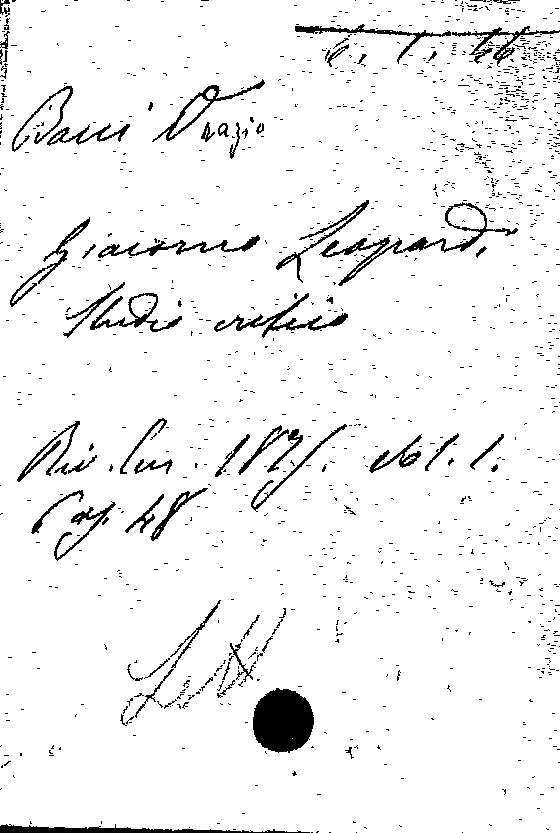 6. 1. 66
Bacci Orazio
Giacomo Leopardi
Studio critico
Riv. Eur. 1875. vol. 1.
Pag. 48
Lett